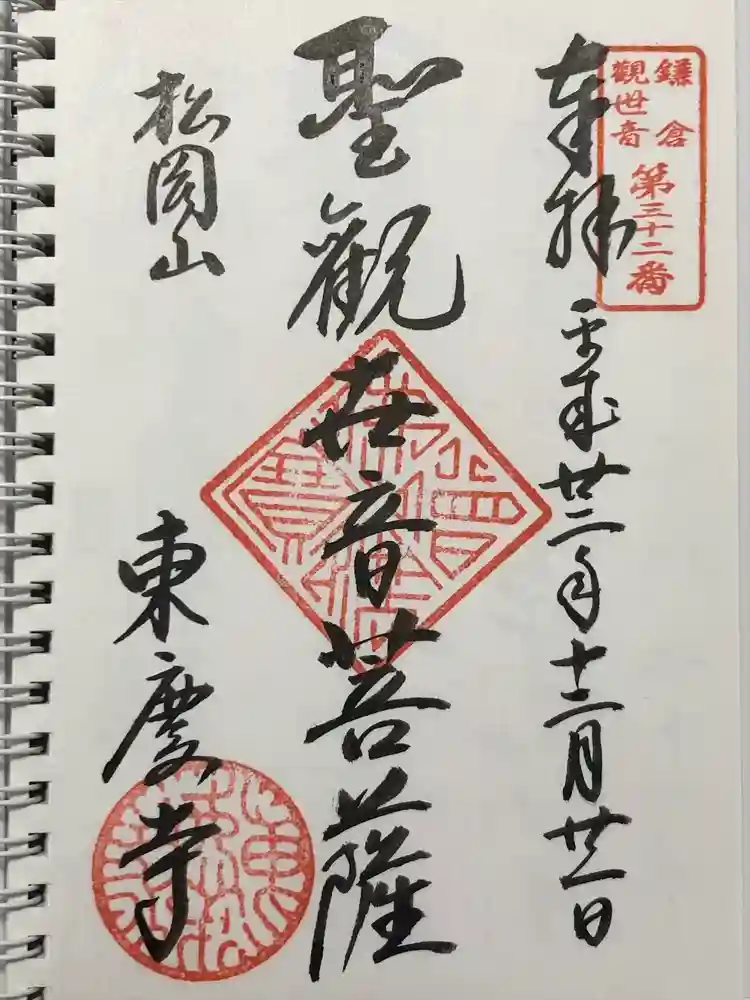 鎌倉
觀世音
第三十二番
奉拝 平成廿二年十二月廿一日
聖觀世音菩薩
松岡山 東慶寺